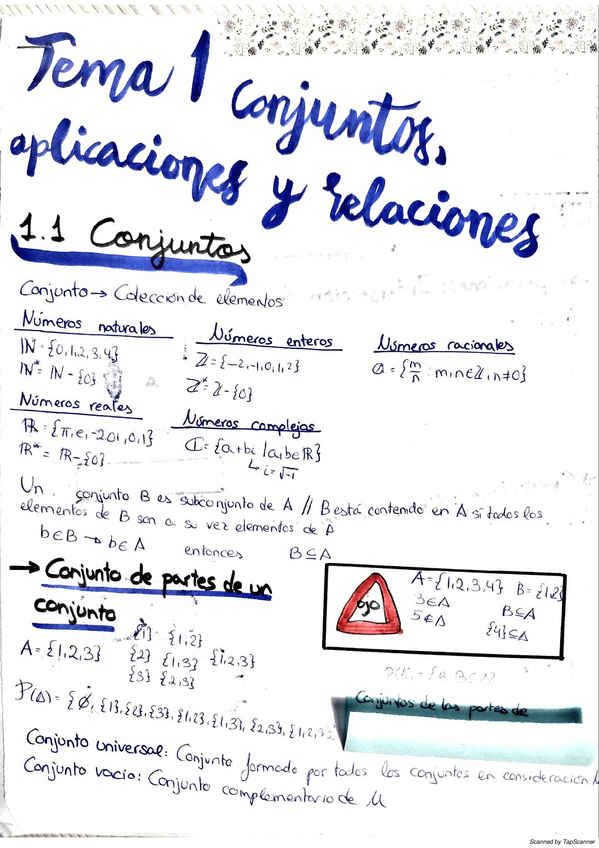 Tema 1 Conjuntos,
aplicaciones y relaciones
1.1 Conjuntos
Conjunto → Colección de elementos
Números naturales
ℕ = {0,1,2,3,4}
ℕ* = ℕ - {0}
Números enteros
ℤ = {-2,-1,0,1,2}
ℤ* = ℤ - {0}
Números racionales
ℚ = {m/n : m,n∈ℤ, n≠0}
Números reales
ℝ = {π, e, -2.01, 0, 1}
ℝ* = ℝ - {0}
Números complejos
ℂ = {a+bi / a,b∈ℝ}
↳ i = √-1
Un conjunto B es subconjunto de A // B está contenido en A si todos los
elementos de B son a su vez elementos de A
b∈B → b∈A entonces B⊆A
→ Conjunto de partes de un
conjunto
ojo
A = {1,2,3,4} B = {1,2}
3∈A B⊆A
5∉A {4}⊆A
{1} {1,2}
A = {1,2,3} {2} {1,3} {1,2,3}
{3} {2,3}
P(A) = {∅, {1}, {2}, {3}, {1,2}, {1,3}, {2,3}, {1,2,3
Conjuntos de las partes de
Conjunto universal: Conjunto formado por todos los conjuntos en consideración
Conjunto vacio: Conjunto complementario de U
Scanned by TapScanner